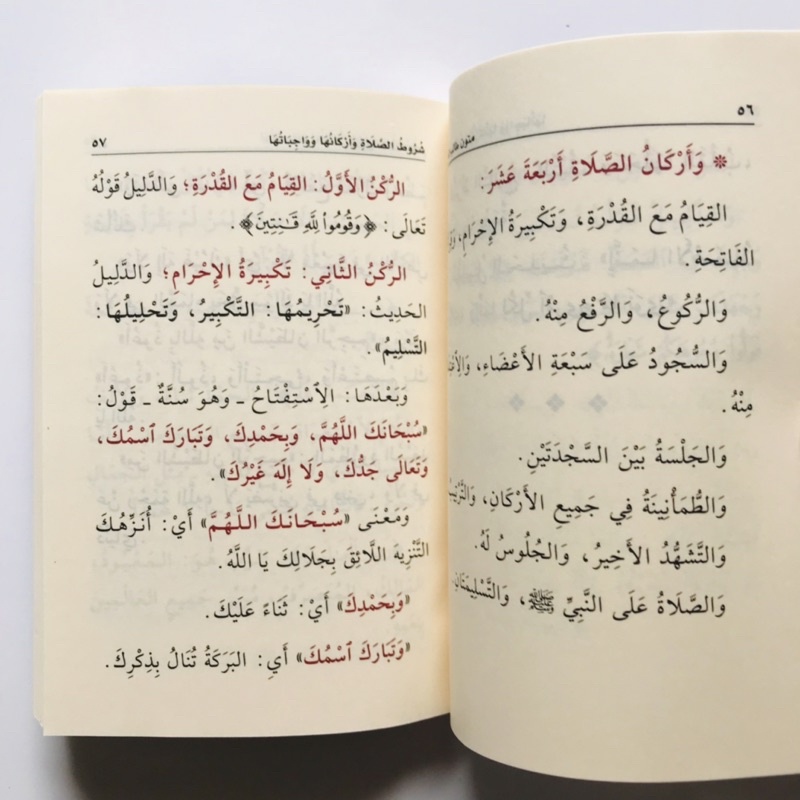 ٥٦
متون
❊ وَأَرْكَانُ الصَّلَاةِ أَرْبَعَةَ عَشَرَ:
القِيَامُ مَعَ القُدْرَةِ، وَتَكْبِيرَةُ الإِحْرَامِ،
الفَاتِحَةِ.
وَالرُّكُوعُ، وَالرَّفْعُ مِنْهُ.
وَالسُّجُودُ عَلَى سَبْعَةِ الأَعْضَاءِ،
مِنْهُ.
وَالجَلْسَةُ بَيْنَ السَّجْدَتَيْنِ.
وَالطُّمَأْنِينَةُ فِي جَمِيعِ الأَرْكَانِ،
وَالتَّشَهُّدُ الأَخِيرُ، وَالجُلُوسُ لَهُ.
وَالصَّلَاةُ عَلَى النَّبِيِّ ﷺ، وَالتَّسْلِيمَتَانِ.
شُرُوطُ الصَّلَاةِ وَأَرْكَانُهَا وَوَاجِبَاتُهَا ٥٧
الرُّكْنُ الأَوَّلُ: القِيَامُ مَعَ القُدْرَةِ؛ وَالدَّلِيلُ قَوْلُهُ
تَعَالَى: ﴿وَقُومُواْ لِلَّهِ قَٰنِتِينَ﴾.
الرُّكْنُ الثَّانِي: تَكْبِيرَةُ الإِحْرَامِ؛ وَالدَّلِيلُ
الحَدِيثُ: «تَحْرِيمُهَا: التَّكْبِيرُ، وَتَحْلِيلُهَا:
التَّسْلِيمُ».
وَبَعْدَهَا: الِاسْتِفْتَاحُ ـ وَهُوَ سُنَّةٌ ـ قَوْلُ:
«سُبْحَانَكَ اللَّهُمَّ، وَبِحَمْدِكَ، وَتَبَارَكَ ٱسْمُكَ،
وَتَعَالَى جَدُّكَ، وَلَا إِلَهَ غَيْرُكَ».
وَمَعْنَى «سُبْحَانَكَ اللَّهُمَّ» أَيْ: أُنَزِّهُكَ
التَّنْزِيهَ اللَّائِقَ بِجَلَالِكَ يَا اللَّهُ.
«وَبِحَمْدِكَ» أَيْ: ثَنَاءً عَلَيْكَ.
«وَتَبَارَكَ ٱسْمُكَ» أَيِ: البَرَكَةُ تُنَالُ بِذِكْرِكَ.